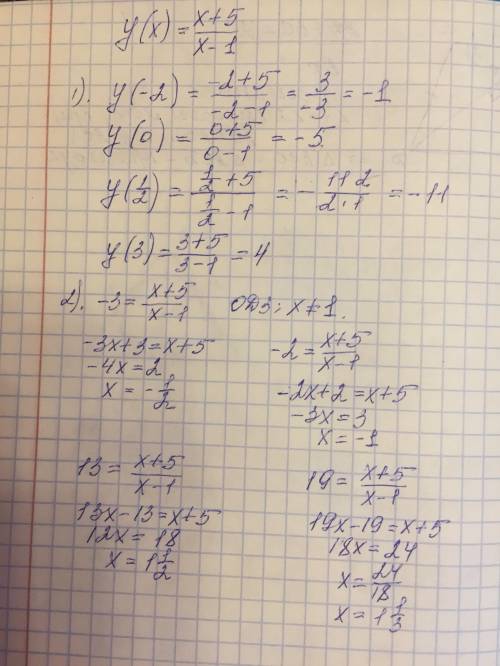 y(x) = (x+5)/(x-1)
1). y(-2) = (-2+5)/(-2-1) = 3/(-3) = -1
y(0) = (0+5)/(0-1) = -5.
y(1/2) = (1/2+5)/(1/2-1) = - (11 2)/(2·1) = -11
y(3) = (3+5)/(3-1) = 4
2). -3 = (x+5)/(x-1) ОДЗ: x≠1.
-3x+3 = x+5
-4x = 2
x = -1/2
-2 = (x+5)/(x-1)
-2x+2 = x+5
-3x = 3
x = -1
13 = (x+5)/(x-1)
13x-13 = x+5
12x = 18
x = 1 1/2
19 = (x+5)/(x-1)
19x-19 = x+5
18x = 24
x = 24/18
x = 1 1/3